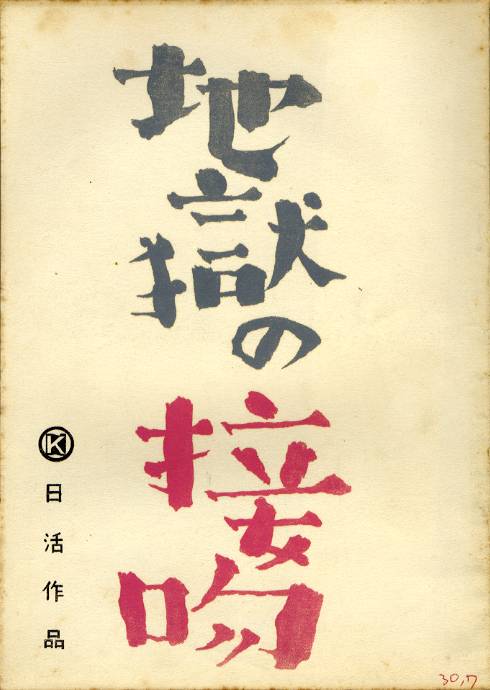 地獄の
接吻
K
日活作品
30,7